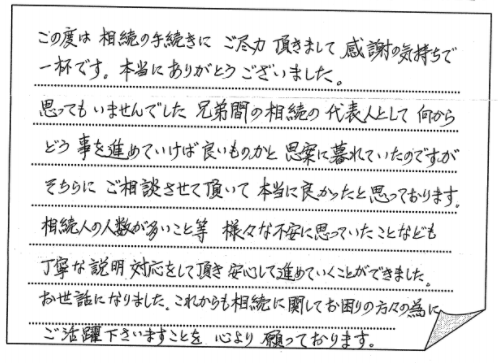 この度は 相続の手続きに ご尽力 頂きまして 感謝の気持ちで
一杯です。本当にありがとうございました。
思ってもいませんでした 兄弟間の相続の 代表人として 何から
どう 事を進めていけば良いものかと 思案に暮れていたのですが
そちらに ご相談させて頂いて 本当に良かったと思っております。
相続人の人数が多いこと等 様々な不安に思っていたことなども
丁寧な説明 対応をして頂き 安心して進めていくことができました。
お世話になりました。これからも相続に関してお困りの方々の為に
ご活躍下さいますことを 心より 願っております。